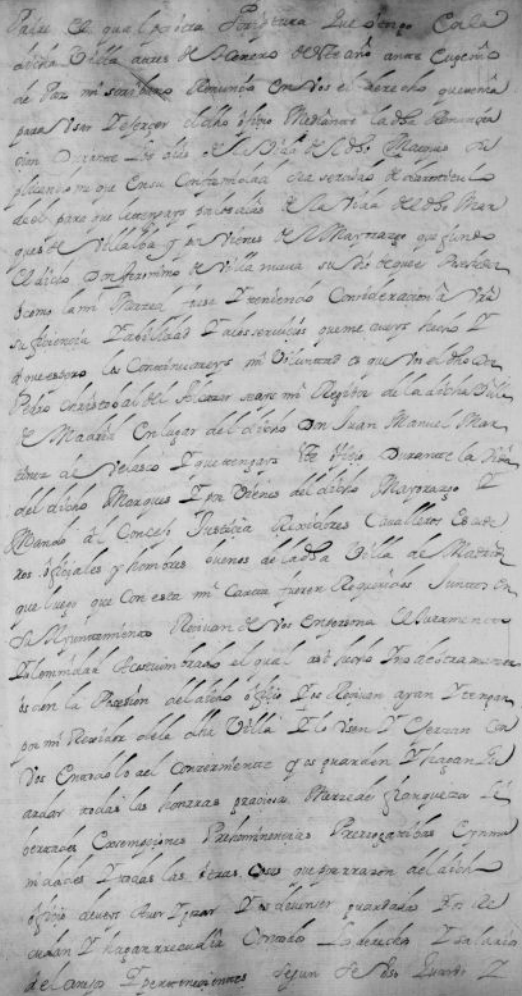 Padre el qual por otra scriptura que otorgo en la
dicha Villa antes de Henero deste año ante Eugenio
de Paz mi scribano Renunçio en vos el derecho que tenia
para usar y exerçer el dicho ofiçio Mediante la dha Renunçia
çion Durante los dias de la Vida del dho Marques su
plicandome que en su Conformidad sea servido de daros titulo
de el para que le tengays por los dias de la Vida del dho Mar
ques de Villalba y por vienes del Mayorazgo que fundo
el dicho Don Geronimo de Villa nueva
como la mi Merced fuese y teniendo Consideraçion a Vra
sufiçiençia y abilidad y a los serviçios que me aveys hecho y
que espero la Continuareys mi Voluntad es que Vos el dho Don
Pedro Christobal del Alcazar seays mi Regidor de la dicha Villa
de Madrid en lugar del dicho Don Juan Manuel Mar
tinez de Velasco y que tengays este ofiçio Durante la Vida
del dicho Marques y por Vienes del dicho Mayorazgo y
Mando al Conçejo Justiçia Regidores Cavalleros Escude
ros ofiçiales y hombres buenos de la dha Villa de Madrid
que luego que con esta mi Carta fueren Requeridos Juntos en
su Ayuntamiento Reçivan de Vos en persona el Juramento
y solemnidad Acostumbrado el qual asi hecho y no de otra manera
os den la Posesion del dicho ofiçio y os Reçivan ayan y tengan
por mi Regidor de la dha Villa y lo Usen y Exerzan con
Vos en todo lo a el Conçerniente y os guarden y hagan gu
ardar todas las honrras graçias Merçedes franquezas li
bertades Exempçiones Preheminençias Prerrogativas Ynmu
nidades y todas las otras Cosas que por razon del dicho
ofiçio deveis aver y gozar y os deven ser guardadas y os Re
cudan y hagan recudir Con todos los derechos y salarios
a el anejos y perteneçientes segun se Uso guardo y